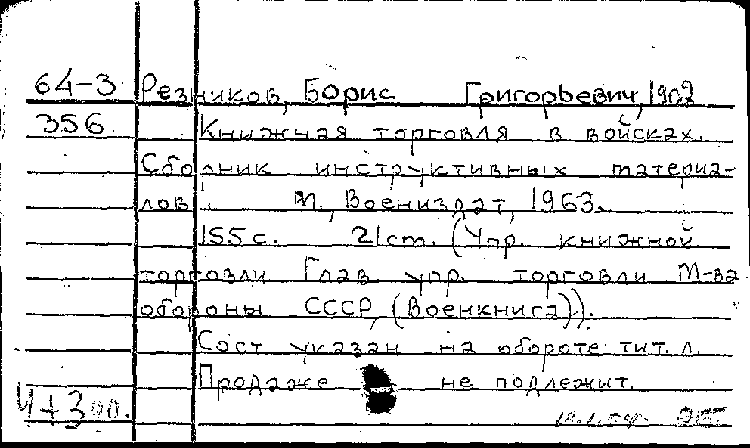 64-3 Резников, Борис Григорьевич, 1902
356 Книжная торговля в войсках.
Сборник инструктивных материа-
лов М., Воениздат, 1963.
155 с. 21 см. (Упр. книжной
торговли Глав. упр. торговли М-ва
обороны СССР, (Военкнига)).
Сост указан на обороте тит. л.
Продаже не подлежит.